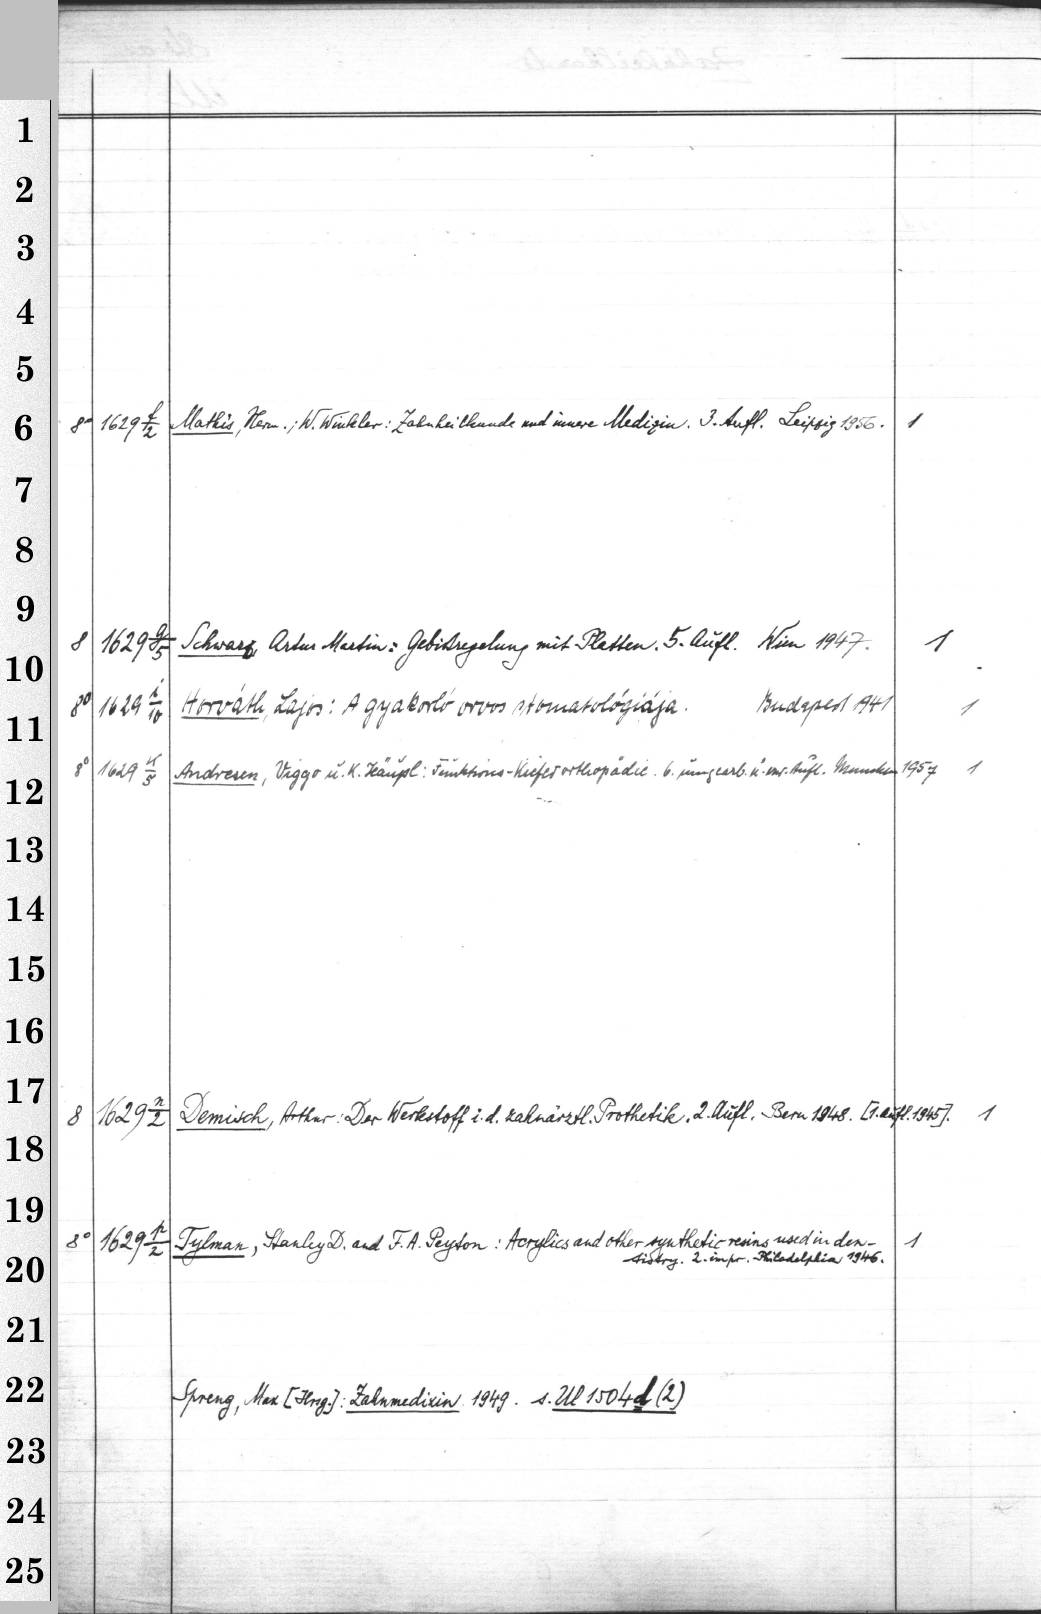 1
2
3
4
5
6
8° 1629 f/2 Mathis, Herm.; W. Winkler: Zahnheilkunde und innere Medizin. 3. Aufl. Leipzig 1956. 1
7
8
9
8 1629 g/5 Schwarz, Artur Martin: Gebißregelung mit Platten. 5. Aufl. Wien 1947. 1
10
8° 1629 i/10 Horváth, Lajos: A gyakorló orvos stomatológiája. Budapest 1941 1
11
8° 1629 k/5 Andresen, Viggo u. K. Häupl: Funktions-Kieferorthopädie. 6. umgearb. u. erw. Aufl. München 1957 1
12
13
14
15
16
17
8 1629 n/2 Demisch, Arthur: Der Werkstoff i. d. zahnärztl. Prothetik. 2. Aufl. Bern 1948. [1. Aufl. 1945]. 1
18
19
8° 1629 p/2 Tylman, Stanley D. and F. A. Peyton: Acrylics and other synthetic resins used in den-
tistry. 2. impr. Philadelphia 1946. 1
20
21
22
Spreng, Max [Hrsg.]: Zahnmedizin 1949. s. Ul 1504 d (2)
23
24
25